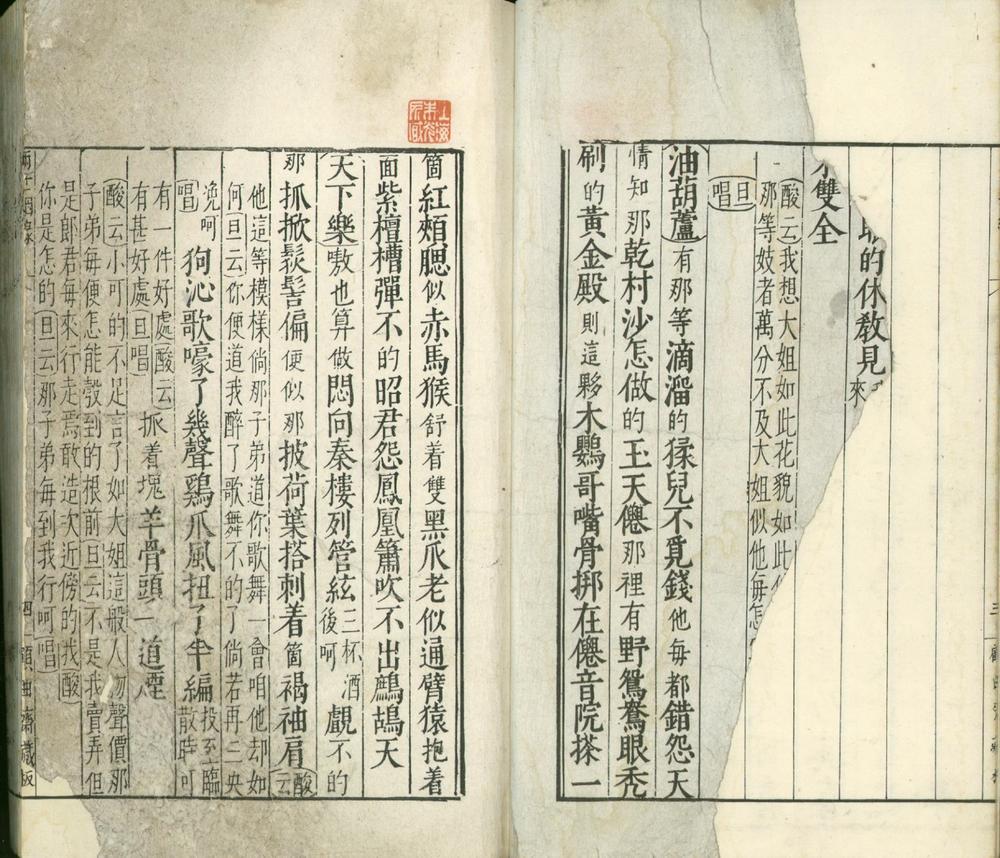 的休教見來
雙全
酸云我想大姐如此花貌如此
那等妓者萬分不及大姐似他每怎
旦唱
油葫蘆有那等滴溜的猱兒不覓錢他每都錯怨天
情知那乾村沙怎做的玉天僊那裡有野鴛鴦眼禿
刷的黃金殿則這夥木鸚哥嘴骨挷在僊音院搽一
箇紅頰腮似赤馬猴舒着雙黑爪老似通臂猿抱着
面紫檀槽彈不的昭君怨鳳凰簫吹不出鷓鴣天
天下樂嗷也算做悶向秦樓列管絃三杯酒後呵覷不的
那抓掀鬏髻偏便似那披荷葉搭刺着箇褐袖肩酸云
他這等模樣倘那子弟道你歌舞一會咱他却如
何旦云你便道我醉了歌舞不的了倘若再三央
浼呵唱狗沁歌嚎了幾聲鷄爪風扭了半編投至臨散時可
有一件好處酸云有甚好處旦唱抓着塊羊骨頭一道煙
酸云小可的不足言了如大姐這般人物聲價那
子弟每便怎能彀到的根前旦云不是我賣弄但
是郎君每來行走焉敢造次近傍的我酸
你是怎的旦云那子弟每到我行呵唱
四
顧曲齋藏板